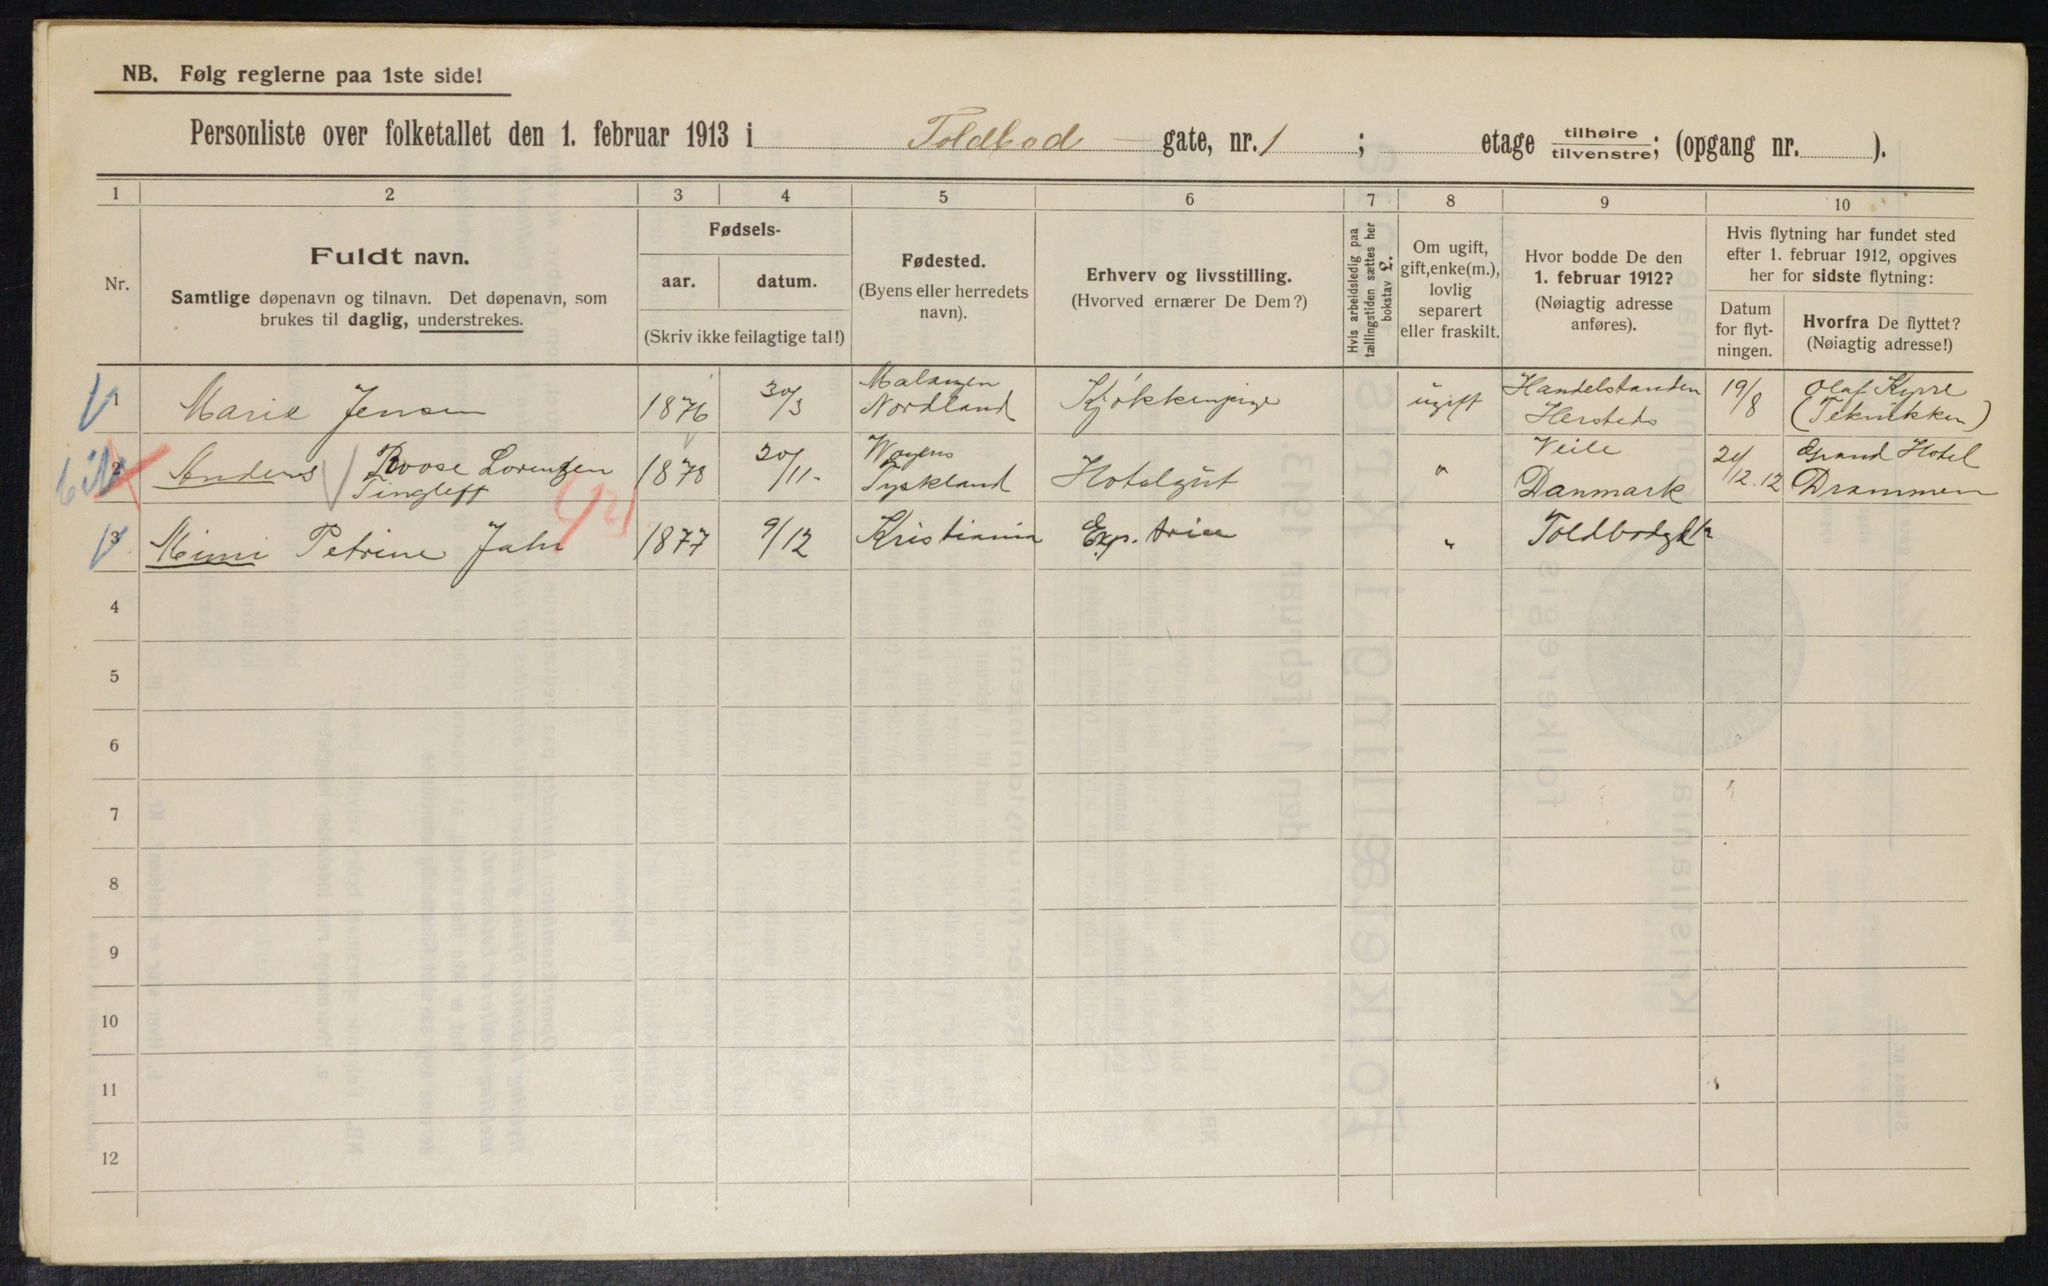 NB. Følg reglerne paa 1ste side!
Personliste over folketallet den 1. februar 1913 i Toldbod - gate, nr. 1 ; etage tilhøire / tilvenstre; (opgang nr. ).
1 2 3 4 5 6 7 8 9 10
Nr.
Fuldt navn.
Samtlige døpenavn og tilnavn. Det døpenavn, som
brukes til daglig, understrekes.
Fødsels-
aar. datum.
(Skriv ikke feilagtige tal!)
Fødested.
(Byens eller herredets
navn).
Erhverv og livsstilling.
(Hvorved ernærer De Dem?)
Hvis arbeidsledig paa
tællingstiden sættes her
bokstav £.
Om ugift,
gift, enke(m.),
lovlig
separert
eller fraskilt.
Hvor bodde De den
1. februar 1912?
(Nøiagtig adresse
anføres).
Hvis flytning har fundet sted
efter 1. februar 1912, opgives
her for sidste flytning:
Datum
for flyt-
ningen.
Hvorfra De flyttet?
(Nøiagtig adresse!)
1 Marie Jensen 1876 30/3 Malangen Nordland ugift Handelstanden Hersteds 19/8 Olaf Kyrre (Teknikken)
2 Anders Roose Lorenzen Tingleff 1878 20/11 Woyens Tyskland Hotelgjst " Veile Danmark 21/12.12 Grand Hotel Drammen
3 Mimi Petrine Jahr 1877 9/12 Kristiania " Toldbodgt
4
5
6
7
8
9
10
11
12